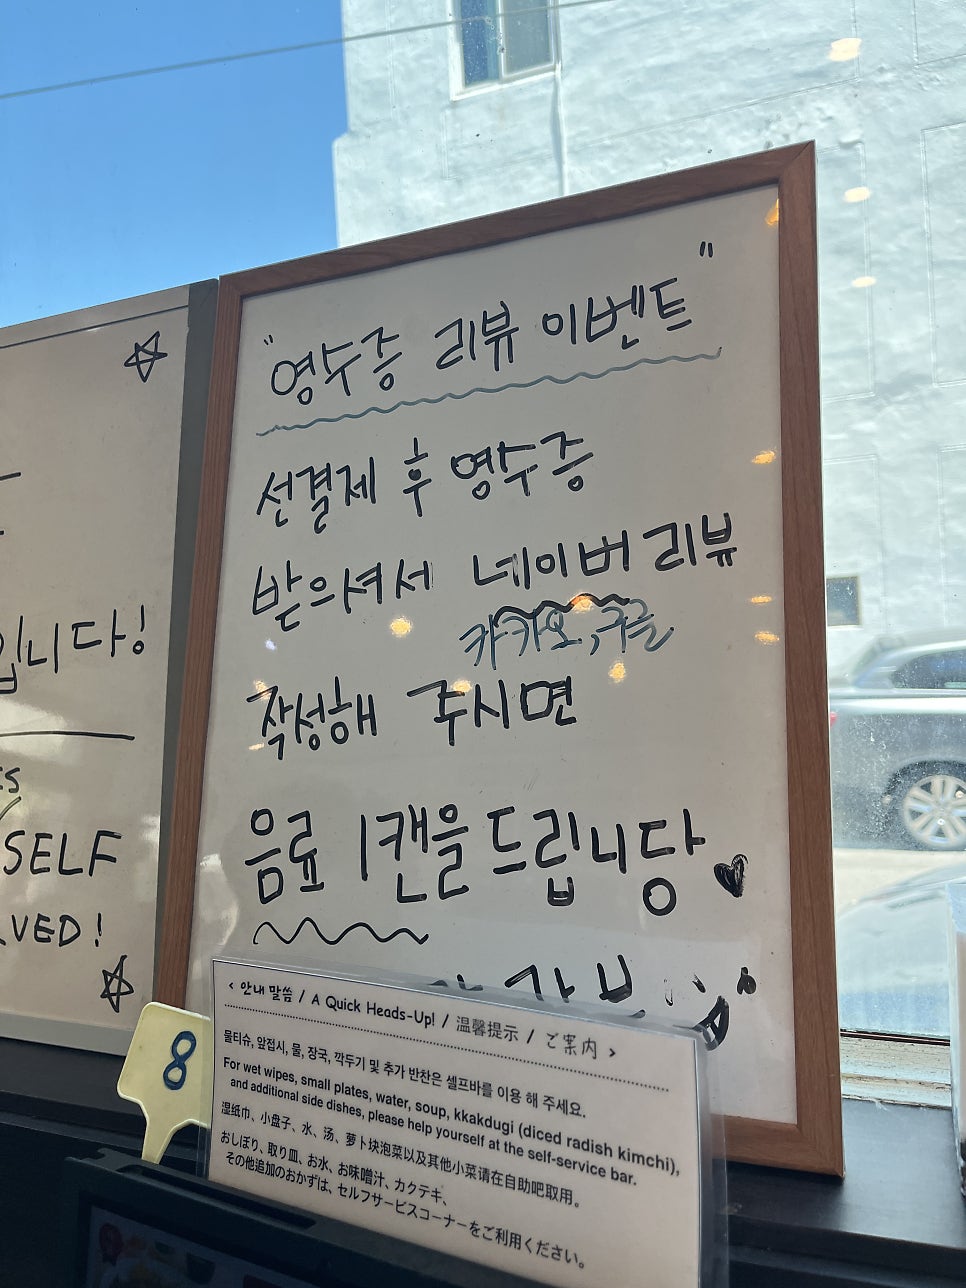 입니다!
SELF
"영수증 리뷰 이벤트"
선결제 후 영수증
받으셔서 네이버 리뷰
카카오, 구글
작성해 주시면
음료 1캔을 드립니당♥
8
< 안내 말씀 / A Quick Heads-Up! / 温馨提示 / ご案内 >
물티슈, 앞접시, 물, 장국, 깍두기 및 추가 반찬은 셀프바를 이용 해 주세요.
For wet wipes, small plates, water, soup, kkakdugi (diced radish kimchi),
and additional side dishes, please help yourself at the self-service bar.
湿纸巾、小盘子、水、汤、萝卜块泡菜以及其他小菜请在自助吧取用。
おしぼり、取り皿、お水、お味噌汁、カクテキ、
その他追加のおかずは、セルフサービスコーナーをご利用ください。